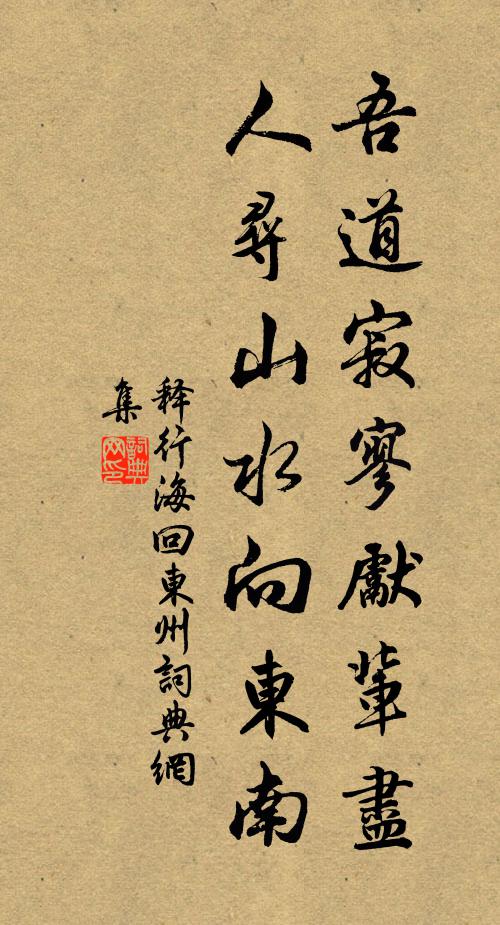 吾道寂寥獻輩盡
人尋山水向東南
释行海回東州詞典網
集
詞典網印